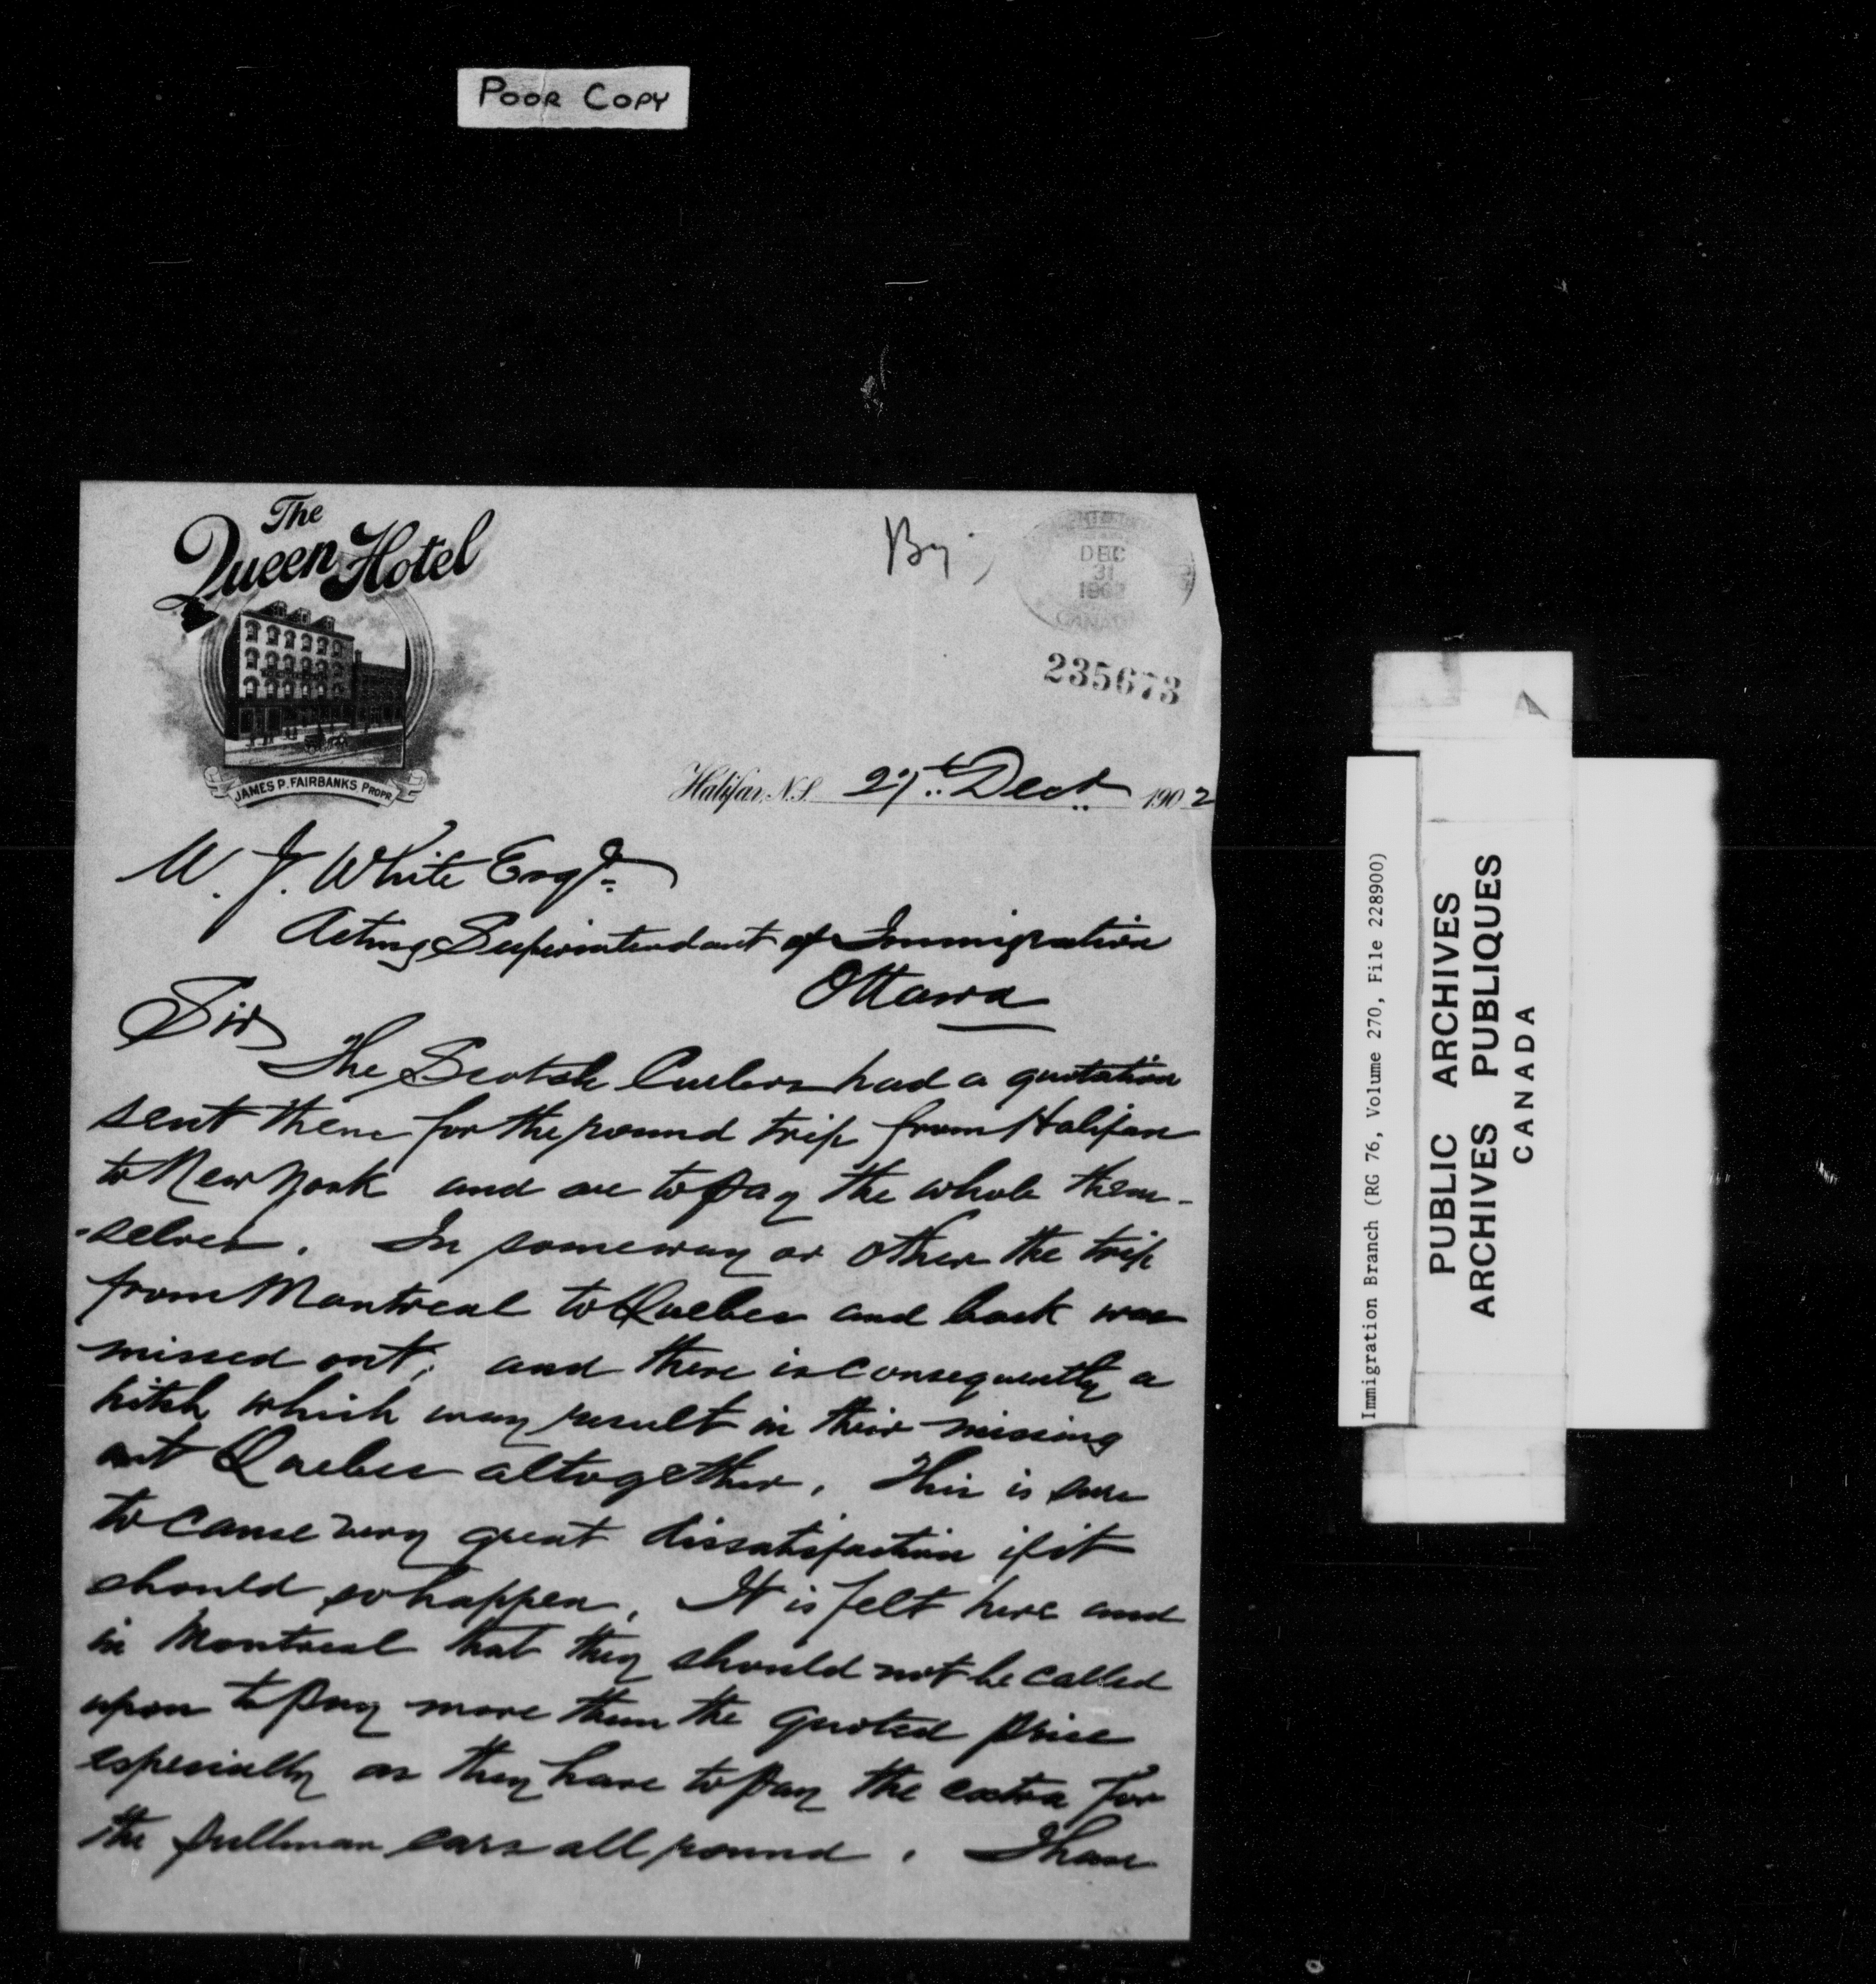 POOR COPY
The
Queen Hotel
JAMES P. FAIRBANKS PROPR.
By
DEC
31
1902
CANADA
235673
Halifax, N.S. 27th Decr 1902
W. J. White Esqr
Acting Superintendant of Immigration
Ottawa
Sir
The Scotch Curlers had a quotation
sent them for the round trip from Halifax
to New York and are to pay the whole them-
-selves. In someway or other the trip
from Montreal to Quebec and back was
missed out; and there is consequently a
hitch which may result in their missing
out Quebec altogether. This is sure
to cause very great dissatisfaction if it
should so happen. It is felt here and
in Montreal that they should not be called
upon to pay more than the quoted price
especially as they have to pay the extra for
the pullman cars all round. I have
Immigration Branch (RG 76, Volume 270, File 228900)
PUBLIC ARCHIVES
ARCHIVES PUBLIQUES
CANADA